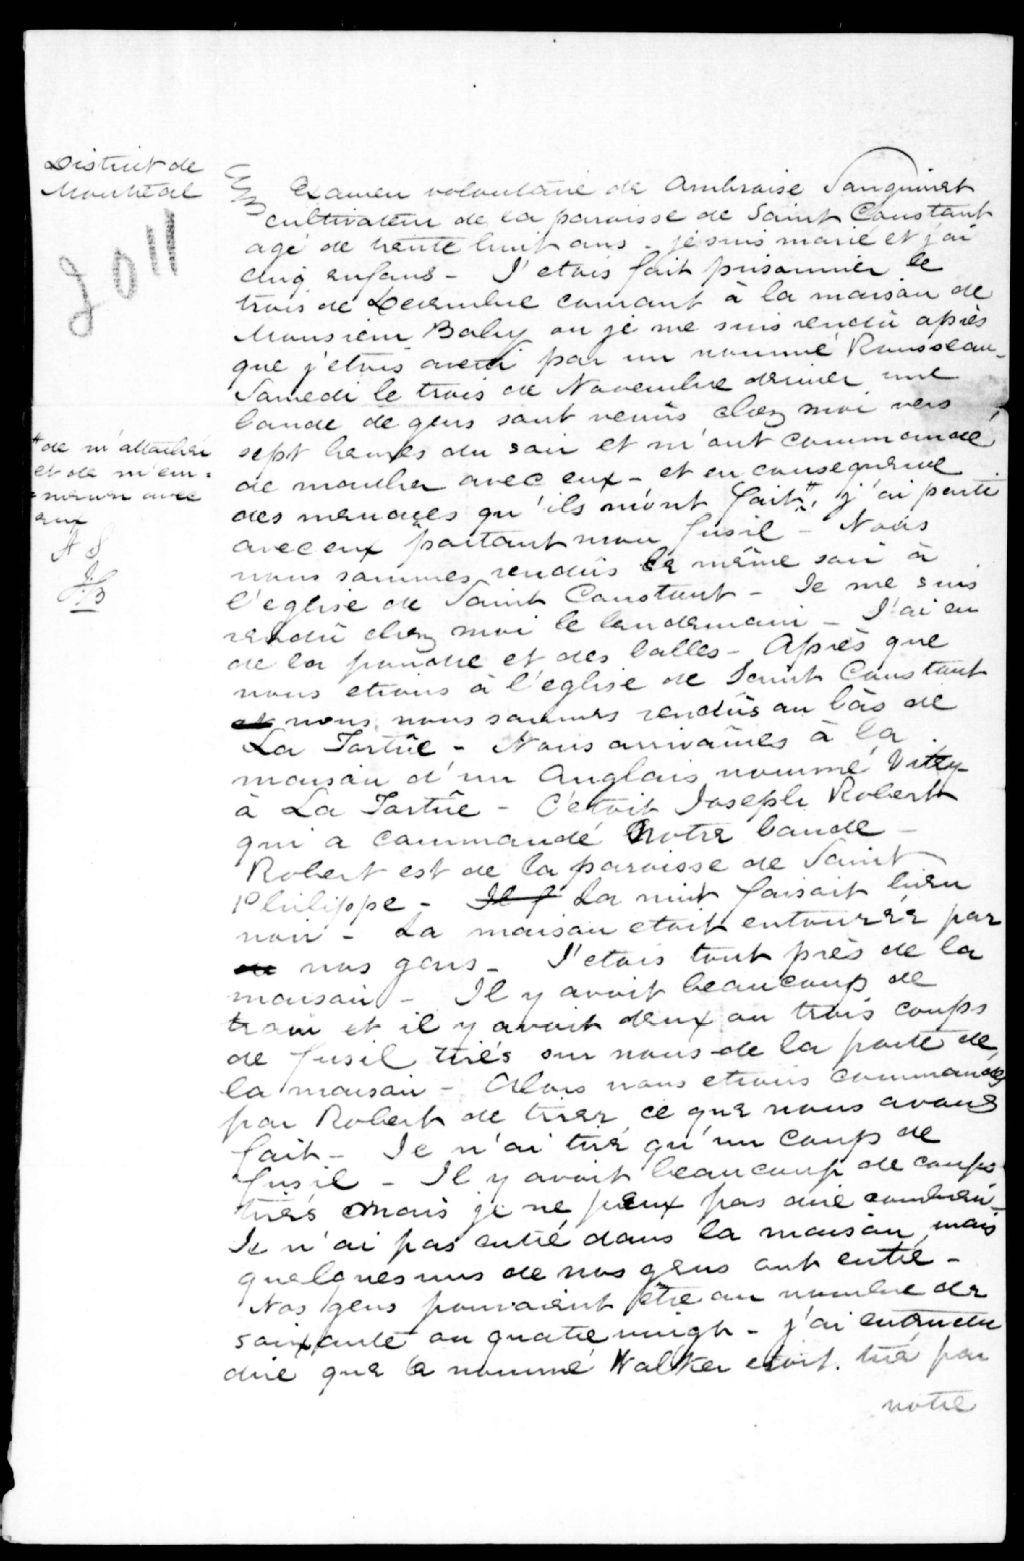 District de
Montréal
2011
Examen volontaire de Ambroise Sanguinet
cultivateur de la paroisse de Saint Constant
agé de trente huit ans - je suis marié et j'ai
cinq enfans - J'etois fait prisonnier le
trois de Decembre courant à la maison de
Monsieur Baby ou je me suis rendû après
que j'étois averti par un nommé Rousseau -
Samedi le trois de Novembre dernier une
bande de gens sont venûs chez moi vers
sept heures du soir et m'ont commandé
de marcher avec eux - et en consequence
des menaces qu'ils m'ont fait #, j'ai parti
avec eux portant mon fusil - Nous
nous sommes rendûs le même soir à
l'eglise de Saint Constant - Je me suis
rendû chez moi le lendemain - J'ai eu
de la poudre et des balles - Après que
nous etions à l'eglise de Saint Constant
et nous nous sommes rendûs au bâs de
La Tortûe - Nous arrivâmes à la
maison d'un Anglais nommé Vitty
à La Tortûe - C'étoit Joseph Robert
qui a commandé notre bande -
Robert est de la paroisse de Saint
Philippe - Il f La nuit faisoit bien
noir - La maison etoit entourée par
de nos gens - J'etois tout près de la
maison - Il y avoit beaucoup de
train et il y avoit deux ou trois coups
de fusil tirés sur nous de la porte de
la maison - Alors nous etions commandés
par Robert de tirer ce que nous avons
fait - Je n'ai tiré qu'un coup de
fusil - Il y avoit beaucoup de coups
tirés mais je ne peux pas dire combien -
Je n'ai pas entré dans la maison, mais
quelques uns de nos gens ont entré -
Nos gens pouvaient être au nombre de
soixante ou quatre vingt - j'ai entendu
dire que le nommé Walker etoit tué par
notre
# de m'attacher
et de m'em-
-mener avec
eux
A S